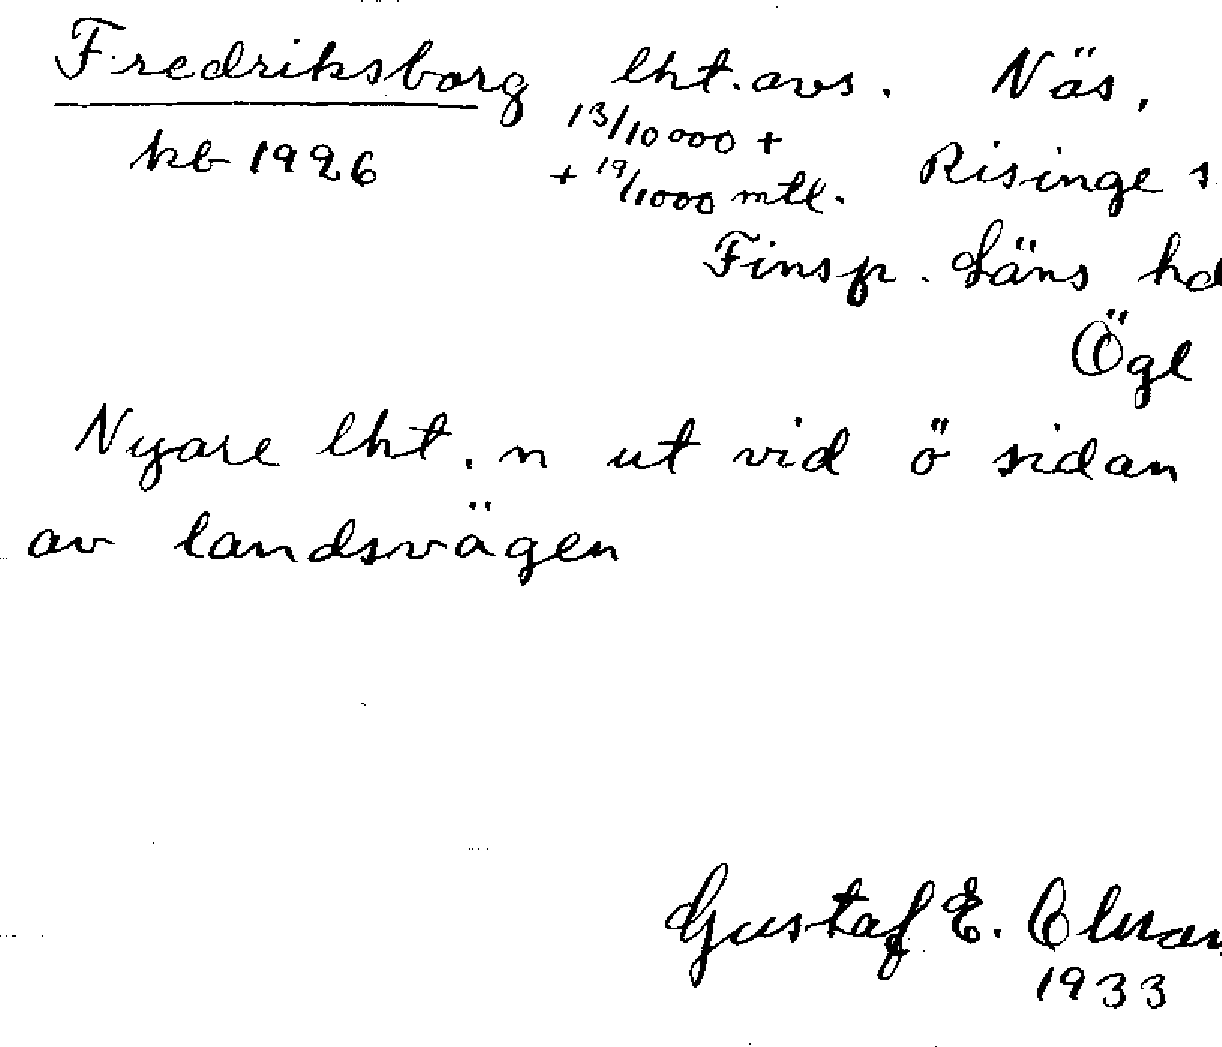 Fredriksborg lht. avs. Näs,
kb 1926 13/10000 + Risinge s
+ 19/1000 mtl.
Finsp. läns hd
Ögl
Nyare lht. n ut vid ö sidan
av landsvägen
Gustaf E.
1933